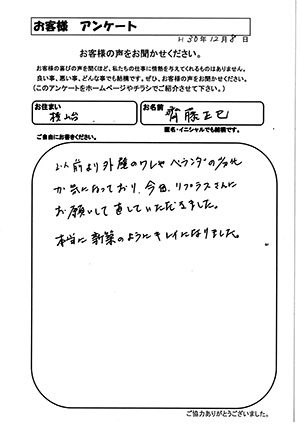 お客様 アンケート
H 30年12月8日
お客様の声をお聞かせください。
お客様の喜びの声を聞くほど、私たちの仕事に情熱を与えてくれるものはありません。
良い事、悪い事、どんな事でも結構です。ぜひ、お客様の声をお聞かせください。
(このアンケートをホームページやチラシでご紹介させて下さい。)
お住まい
お名前
桂台
齊藤正巳
匿名・イニシャルでも結構です。
ご自由にお書きください。
以前より外壁のワレやベランダの汚れ
が気になっており、今回、リプラスさんに
お願いして直していただきました。
本当に新築のようにキレイになりました。
ご協力ありがとうございました。